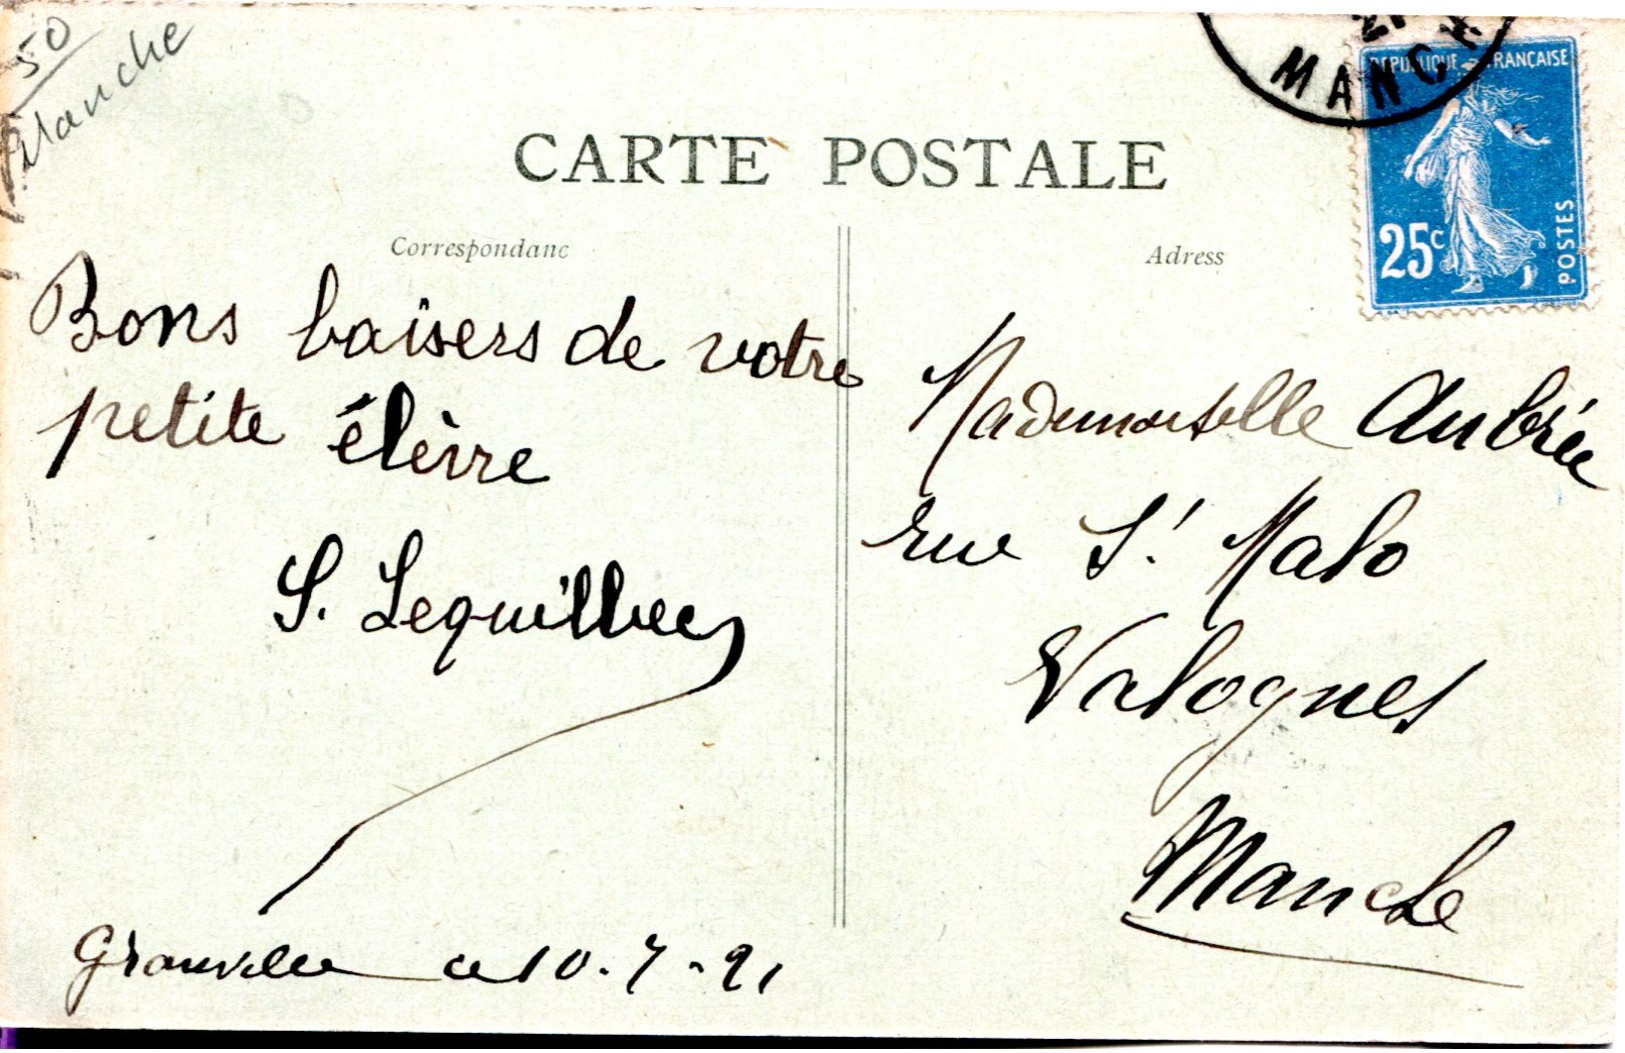 50
Manche
21
MANCHE
REPUBLIQUE FRANÇAISE
25c
POSTES
CARTE POSTALE
Correspondanc
Adress
Bons baisers de votre
petite élève
S. Lequilbec
Granville ce 10-7-21
Mademoiselle Aubrée
rue St Malo
Valognes
Manche